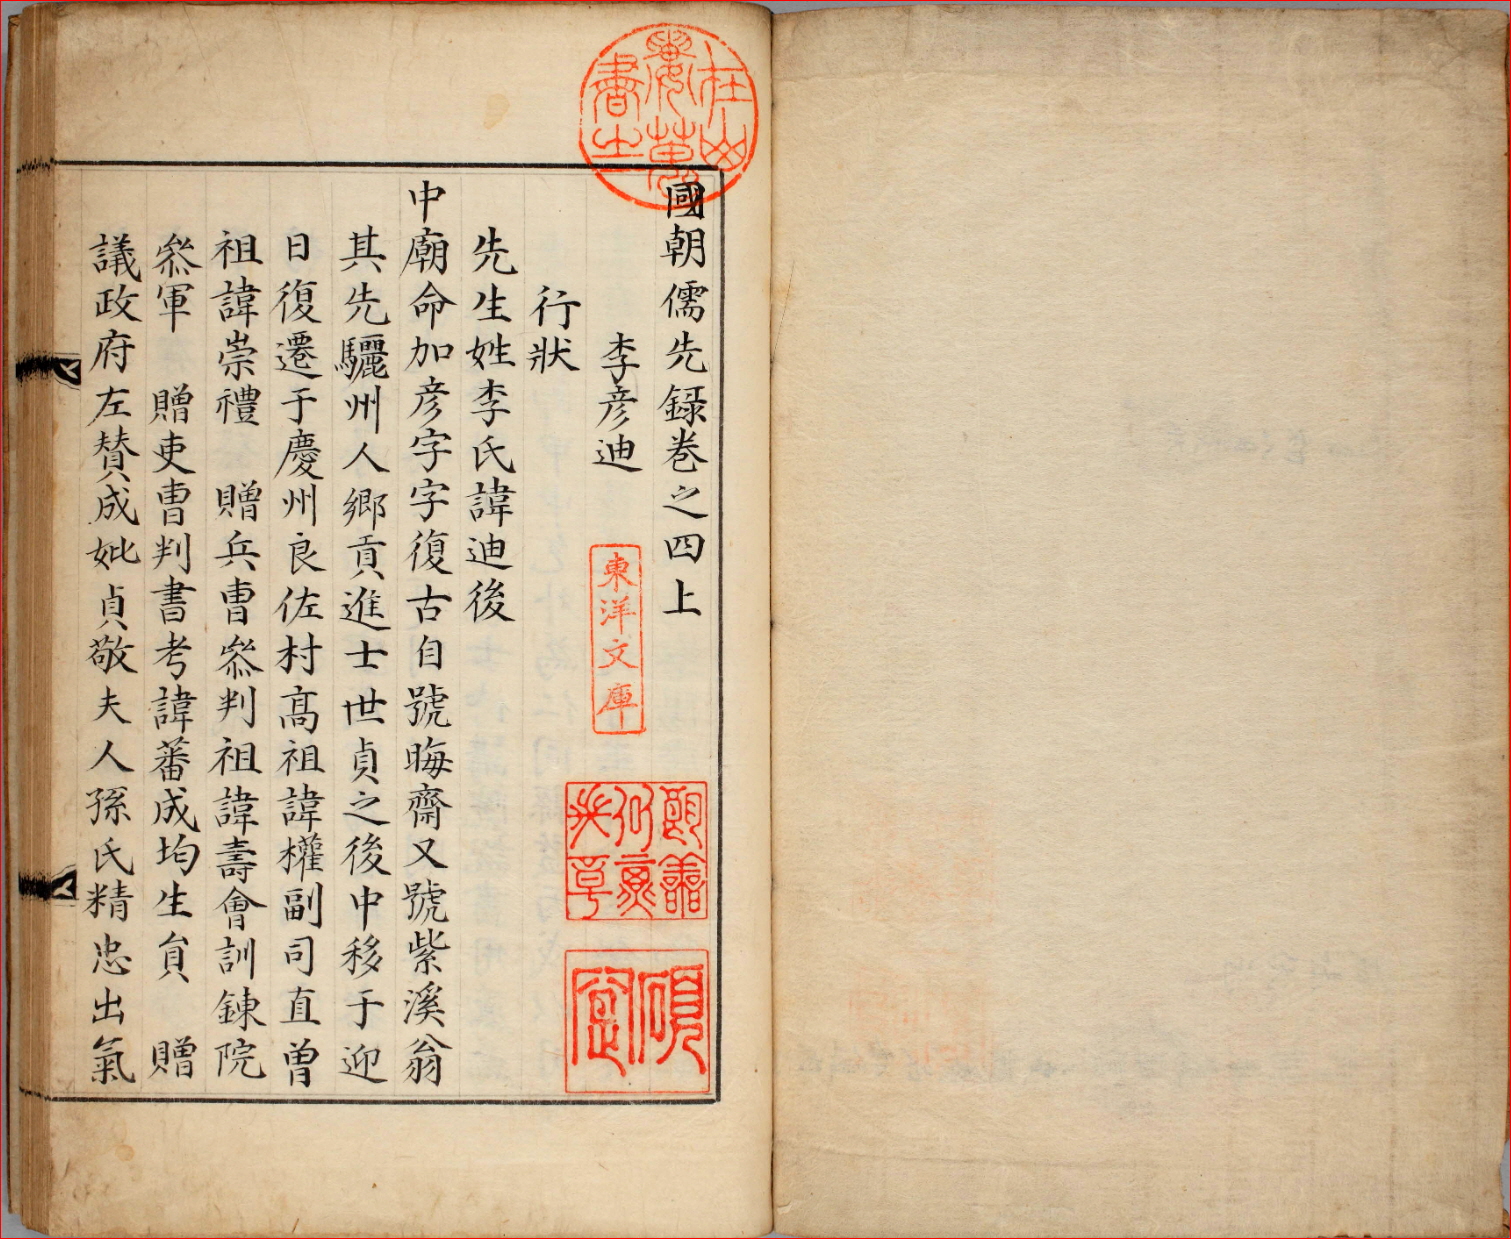 國朝儒先録卷之四上
李彦迪
行狀
先生姓李氏諱迪後
中廟命加彦字字復古自號晦齋又號紫溪翁
其先驪州人鄉貢進士世貞之後中移于迎
日復遷于慶州良佐村高祖諱權副司直曾
祖諱崇禮 贈兵曹叅判祖諱壽會訓鍊院
叅軍 贈吏曹判書考諱蕃成均生員 贈
議政府左賛成妣貞敬夫人孫氏精忠出氣
在山
樓萬
書生
東洋文庫